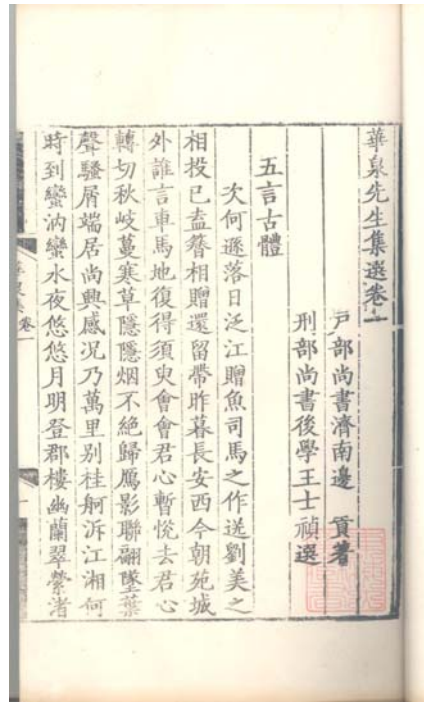 華泉先生集選卷一
戶部尚書濟南邊　貢著
刑部尚書後學王士禎選
五言古體
次何遜落日泛江贈魚司馬之作送劉美之
相投已盍簪相贈還留帶昨暮長安西今朝苑城
外誰言車馬地復得須臾會會君心暫悅去君心
轉切秋岐蔓寒草隱隱烟不絕歸鴈影聯翩墜葉
聲騷屑端居尚興感况乃萬里別桂舸泝江湘何
時到蠻汭蠻水夜悠悠月明登郡樓幽蘭翠縈渚
卷一